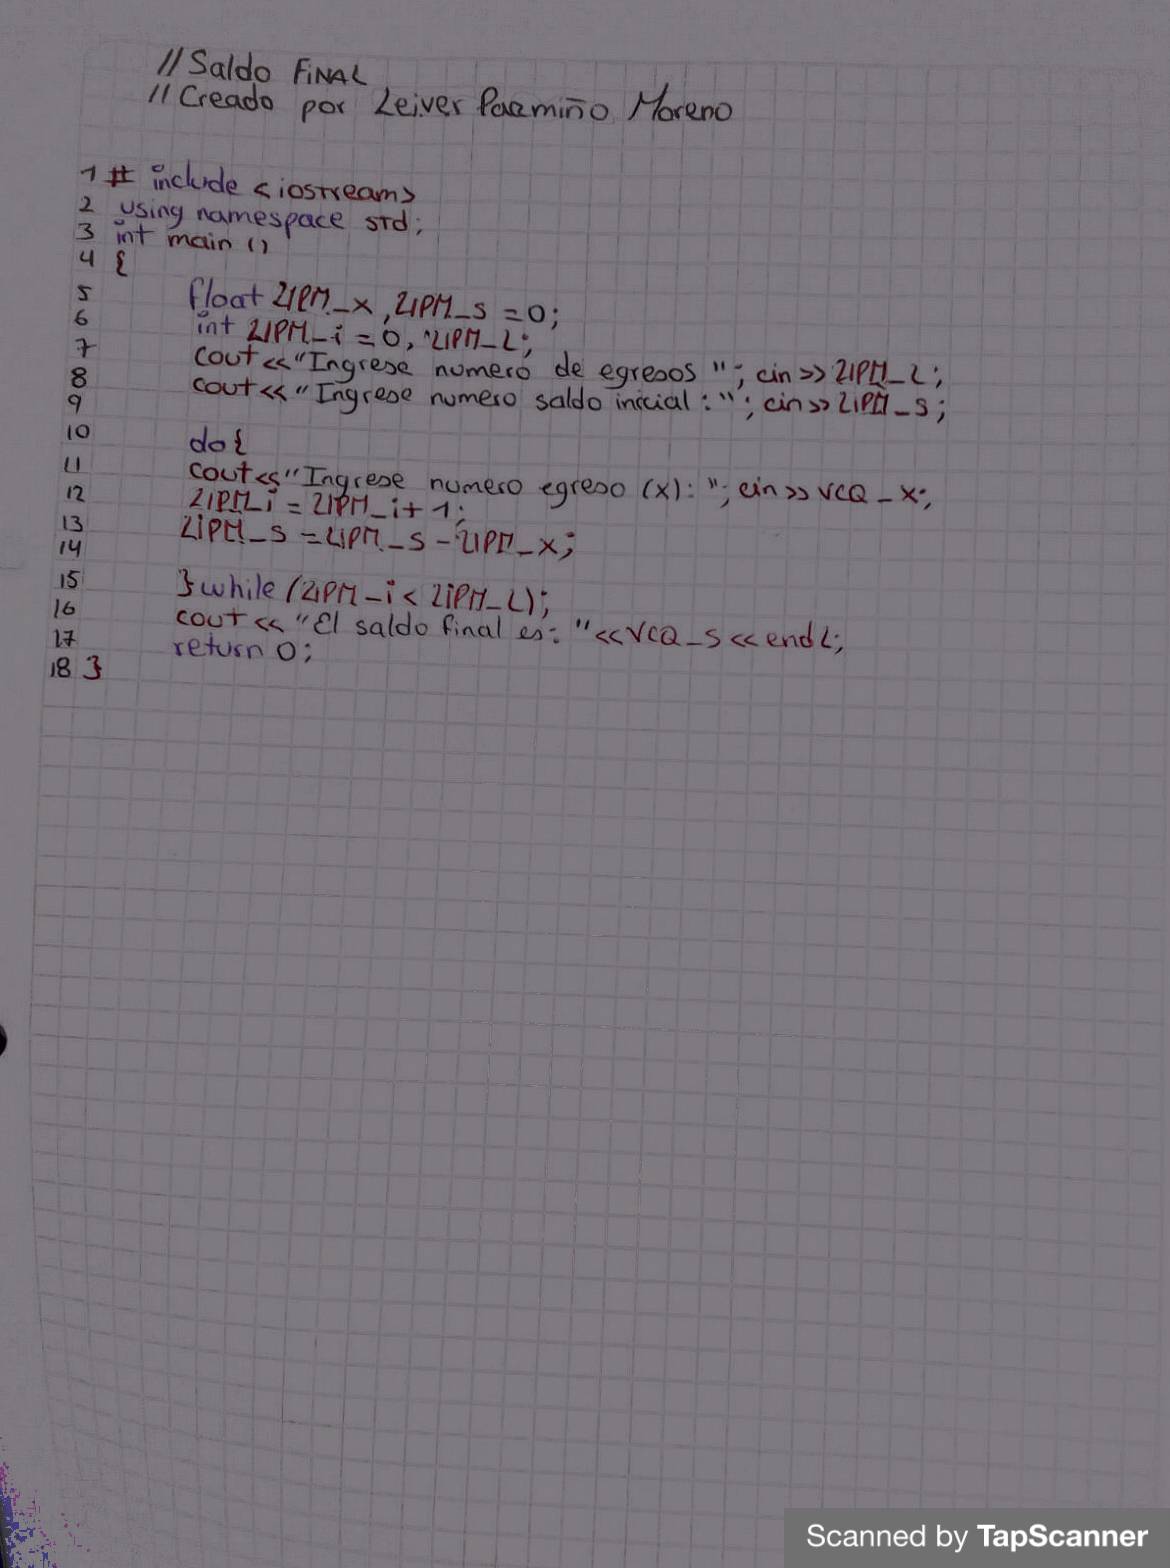 // Saldo FINAL
// Creado por Leiver Paemiño Moreno
1 # include <iostream>
2 using namespace std;
3 int main ()
4 {
5 float LIPM_x, LIPM_s = 0;
6 int LIPM_i = 0, LIPM_L;
7 cout << "Ingrese numero de egresos "; cin >> LIPM_L;
8 cout << "Ingrese numero saldo inicial : "; cin >> LIPM_s;
9
10 do {
11 cout << "Ingrese numero egreso (x): "; cin >> VCQ_x;
12 LIPM_i = LIPM_i + 1;
13 LIPM_s = LIPM_s - LIPM_x;
14
15 } while (LIPM_i < LIPM_L);
16 cout << "El saldo final es: " << VCQ_s << endl;
17 return 0;
18 }
Scanned by TapScanner